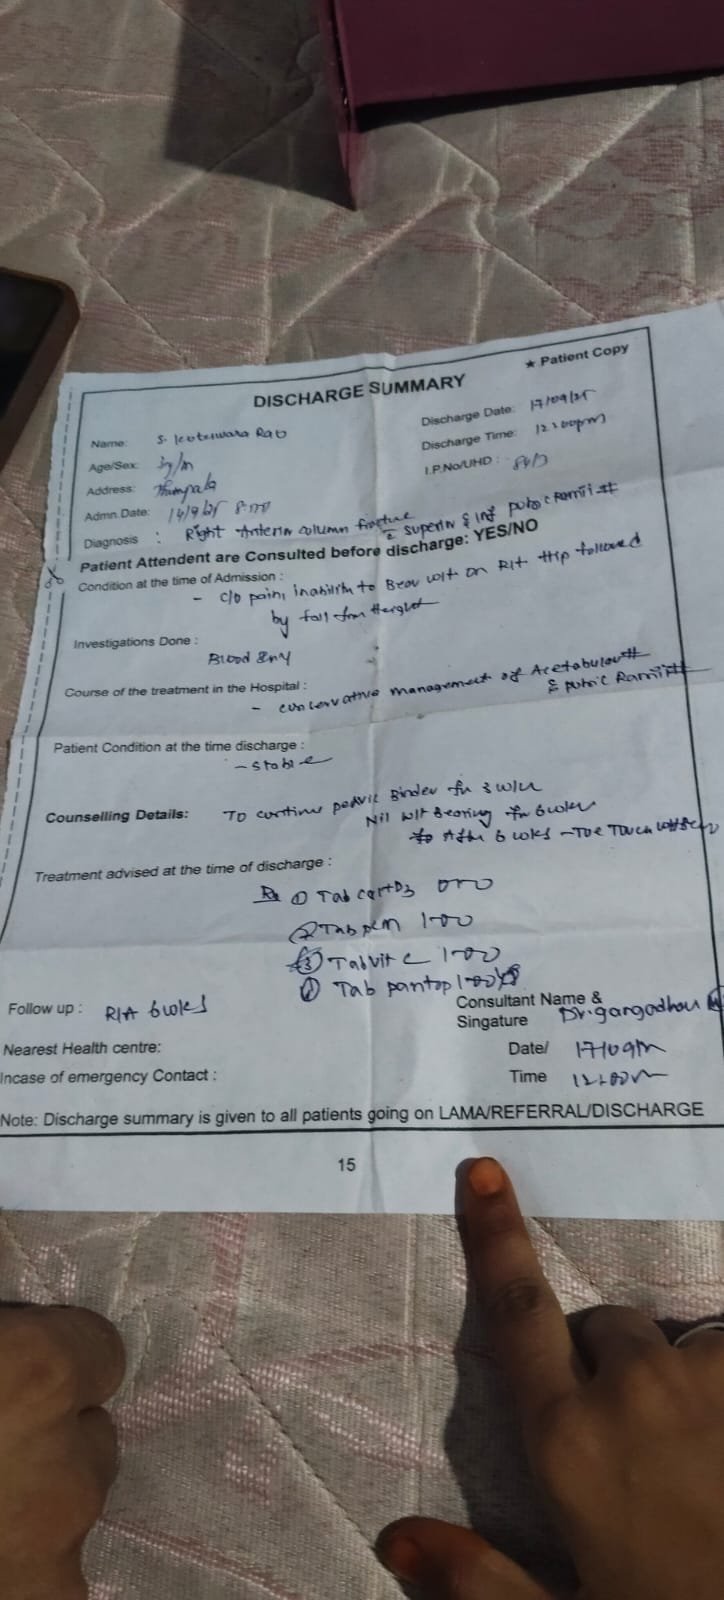 ★ Patient Copy
DISCHARGE SUMMARY
Name: S. Koteswara Rao
Discharge Date: 17/09/25
Age/Sex: /m
Discharge Time: 12:00pm
Address: Thumpala
I.P.No/UHD :
Admn Date: 14/9/25
Diagnosis : Right Anterior column fracture c̄ superior & Inf pubic Rami #
Patient Attendent are Consulted before discharge: YES/NO
Condition at the time of Admission :
- c/o pain, inability to Bear wt on Rt Hip followed
by fall from Height
Investigations Done :
Blood
Course of the treatment in the Hospital :
- conservative management of Acetabular #
& pubic Rami #
Patient Condition at the time discharge :
- stable
Counselling Details: To continue pelvic Binder for 3 wks
Nil wt Bearing for 6 wks
After 6 wks - Toe Touch
Treatment advised at the time of discharge :
Rx ① Tab 0-1-0
② Tab pcm 1-0-0
③ Tab vit c 1-0-0
④ Tab pantop 1-0-0
Follow up : R/A 6 wks
Consultant Name &
Singature Dr. gangadhar
Nearest Health centre:
Date/ 17/09/
Incase of emergency Contact :
Time 12:00
Note: Discharge summary is given to all patients going on LAMA/REFERRAL/DISCHARGE
15